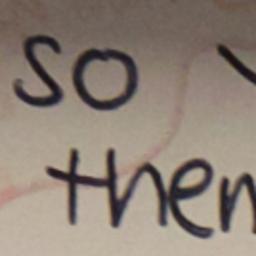 so
then